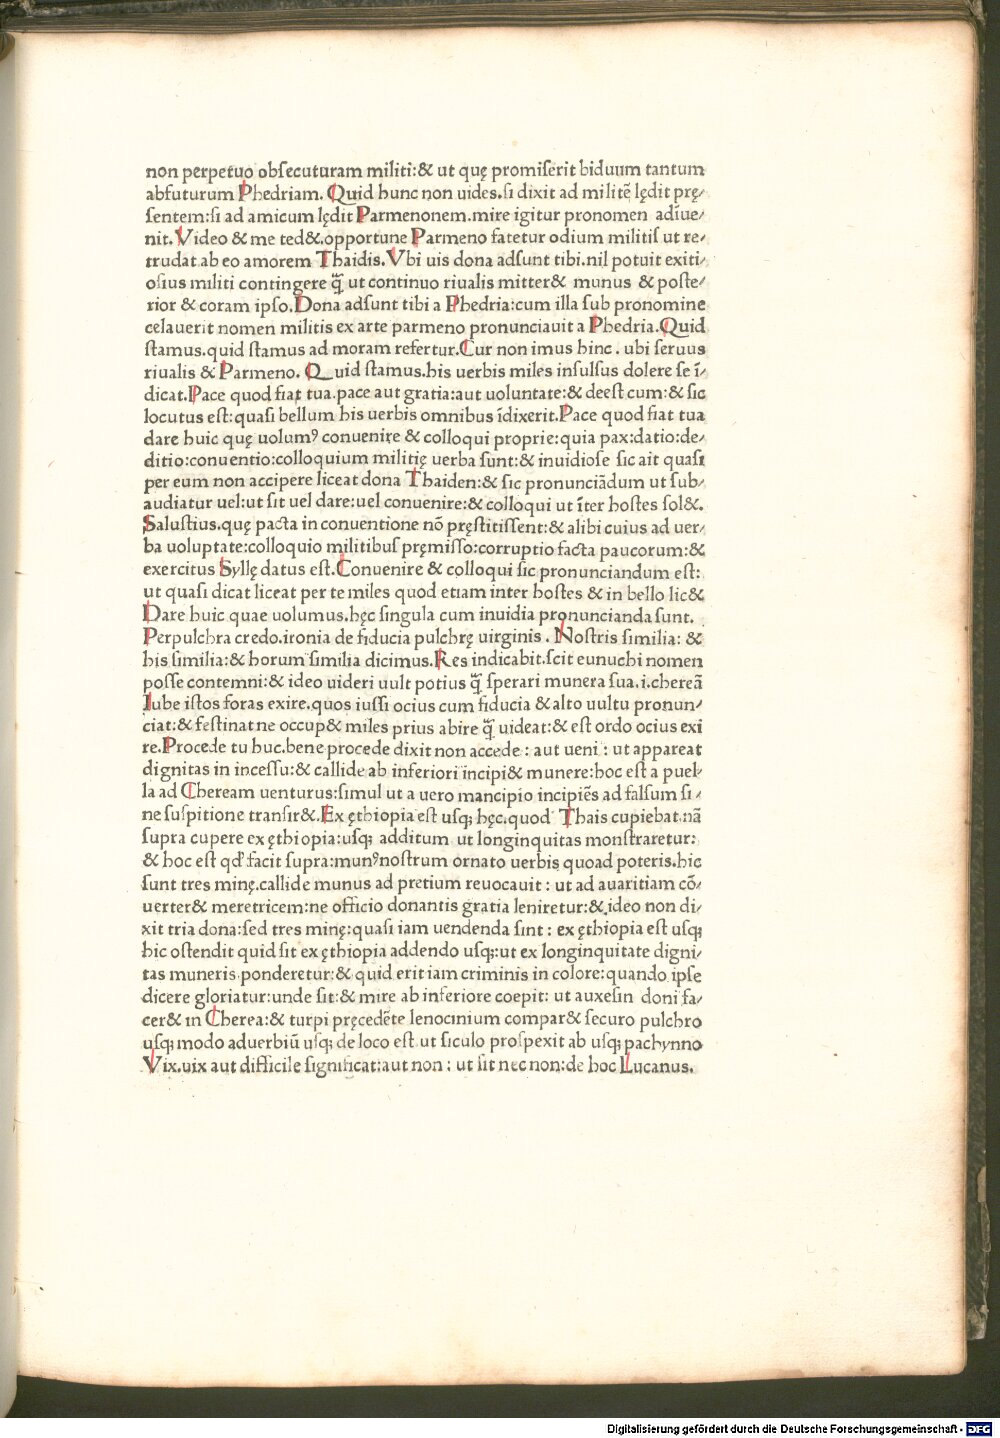 non perpetuo obſecuturam militi:& ut quę promiſerit biduum tantum
abfuturum Phedriam. Quid hunc non uides.ſi dixit ad militē lędit pręſ⸗
ſentem:ſi ad amicum lędit Parmenonem.mire igitur pronomen adiue⸗
nit.Video & me ted&.opportune Parmeno fatetur odium militiſ ut re⸗
trudat ab eo amorem Thaidis.Vbi uis dona adſunt tibi.nil potuit exiti⸗
oſius militi contingere q̄ ut continuo riualis mitter& munus & poſte⸗
rior & coram ipſo.Dona adſunt tibi a Phedria:cum illa ſub pronomine
celauerit nomen militis ex arte parmeno pronunciauit a Phedria.Quid
ſtamus.quid ſtamus ad moram refertur.Cur non imus hinc. ubi ſeruus
riualis & Parmeno. Quid ſtamus.his uerbis miles inſulſus dolere ſe ī⸗
dicat.Pace quod fiat tua.pace aut gratia:aut uoluntate:& deeſt cum:& ſic
locutus eſt:quaſi bellum his uerbis omnibus īdixerit.Pace quod fiat tua
dare huic quę uolum⁹ conuenire & colloqui proprie:quia pax:datio:de⸗
ditio:conuentio:colloquium militię uerba ſunt:& inuidioſe ſic ait quaſi
per eum non accipere liceat dona Thaiden:& ſic pronunciādum ut ſub⸗
audiatur uel:ut ſit uel dare:uel conuenire:& colloqui ut īter hoſtes ſol&.
Saluſtius.quę pacta in conuentione nō pręſtitiſſent:& alibi cuius ad uer⸗
ba uoluptate:colloquio militibuſ pręmiſſo:corruptio facta paucorum:&
exercitus Syllę datus eſt.Conuenire & colloqui ſic pronunciandum eſt:
ut quaſi dicat liceat per te miles quod etiam inter hoſtes & in bello lic&
Dare huic quae uolumus.hęc ſingula cum inuidia pronuncianda ſunt.
Perpulchra credo.ironia de fiducia pulchrę uirginis. Noſtris ſimilia: &
his ſimilia:& horum ſimilia dicimus.Res indicabit.ſcit eunuchi nomen
poſſe contemni:& ideo uideri uult potius q̄ ſperari munera ſua.i.chereā
Iube iſtos foras exire.quos iuſſi ocius cum fiducia & alto uultu pronun⸗
ciat:& feſtinat ne occup& miles prius abire q̄ uideat:& eſt ordo ocius exi
re.Procede tu huc.bene procede dixit non accede: aut ueni: ut appareat
dignitas in inceſſu:& callide ab inferiori incipi& munere:hoc eſt a puel⸗
la ad Cheream uenturus:ſimul ut a uero mancipio incipiēs ad falſum ſi⸗
ne ſuſpitione tranſir&.Ex ęthiopia eſt uſq; hęc.quod Thais cupiebat.nā
ſupra cupere ex ęthiopia:uſq; additum ut longinquitas monſtraretur:
& hoc eſt qđ facit ſupra:mun⁹noſtrum ornato uerbis quoad poteris.hic
ſunt tres minę.callide munus ad pretium reuocauit: ut ad auaritiam cō⸗
uerter& meretricem:ne officio donantis gratia leniretur:& ideo non di⸗
xit tria dona:ſed tres minę:quaſi iam uendenda ſint: ex ęthiopia eſt uſq;
hic oſtendit quid ſit ex ęthiopia addendo uſq;:ut ex longinquitate digni⸗
tas muneris ponderetur:& quid erit iam criminis in colore:quando ipſe
dicere gloriatur:unde ſit:& mire ab inferiore coepit: ut auxeſin doni fa⸗
cer& in Cherea:& turpi pręcedēte lenocinium compar& ſecuro pulchro
uſq; modo aduerbiū uſq; de loco eſt ut ſiculo proſpexit ab uſq; pachynno
Vix.uix aut difficile ſignificat:aut non: ut ſit nec non:de hoc Lucanus.
Digitalisierung gefördert durch die Deutsche Forschungsgemeinschaft - DFG